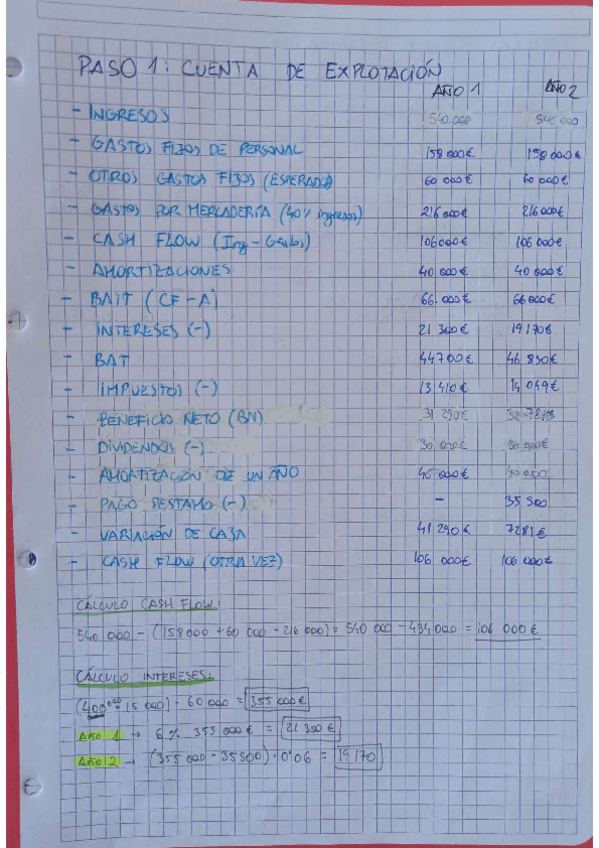 PASO 1: CUENTA DE EXPLOTACIÓN
AÑO 1 AÑO 2
- INGRESOS 540.000 540 000
- GASTOS FIJOS DE PERSONAL 158 000€ 158 000€
- OTROS GASTOS FIJOS (ESPERADO) 60 000€ 60 000€
- GASTOS POR MERCADERÍA (40% ingresos) 216 000€ 216 000€
- CASH FLOW (Ing - Gastos) 106 000€ 106 000€
- AMORTIZACIONES 40 000€ 40 000€
- BAIT (CF - A) 66.000€ 66 000€
- INTERESES (-) 21 300€ 19 170€
- BAT 44 700€ 46 830€
- IMPUESTOS (-) 13 410€ 14 049€
- BENEFICIO NETO (BN) 31 290€
- DIVIDENDOS (-) 30 000€ 30 000€
- AMORTIZACIÓN DE UN AÑO
- PAGO PESTAMO (-) - 35 500
- VARIACIÓN DE CAJA 41 290€ 7281€
- CASH FLOW (OTRA VEZ) 106 000€ 106 000€
CÁLCULO CASH FLOW:
540 000 - (158 000 + 60 000 - 216 000) = 540 000 - 434 000 = 106 000€
CÁLCULO INTERESES:
15 000) - 60 000 = 355 000€
AÑO 1 → 6% 355 000€ = 21 300€
AÑO 2 → (355 000 - 35500) · 0'06 = 19 170